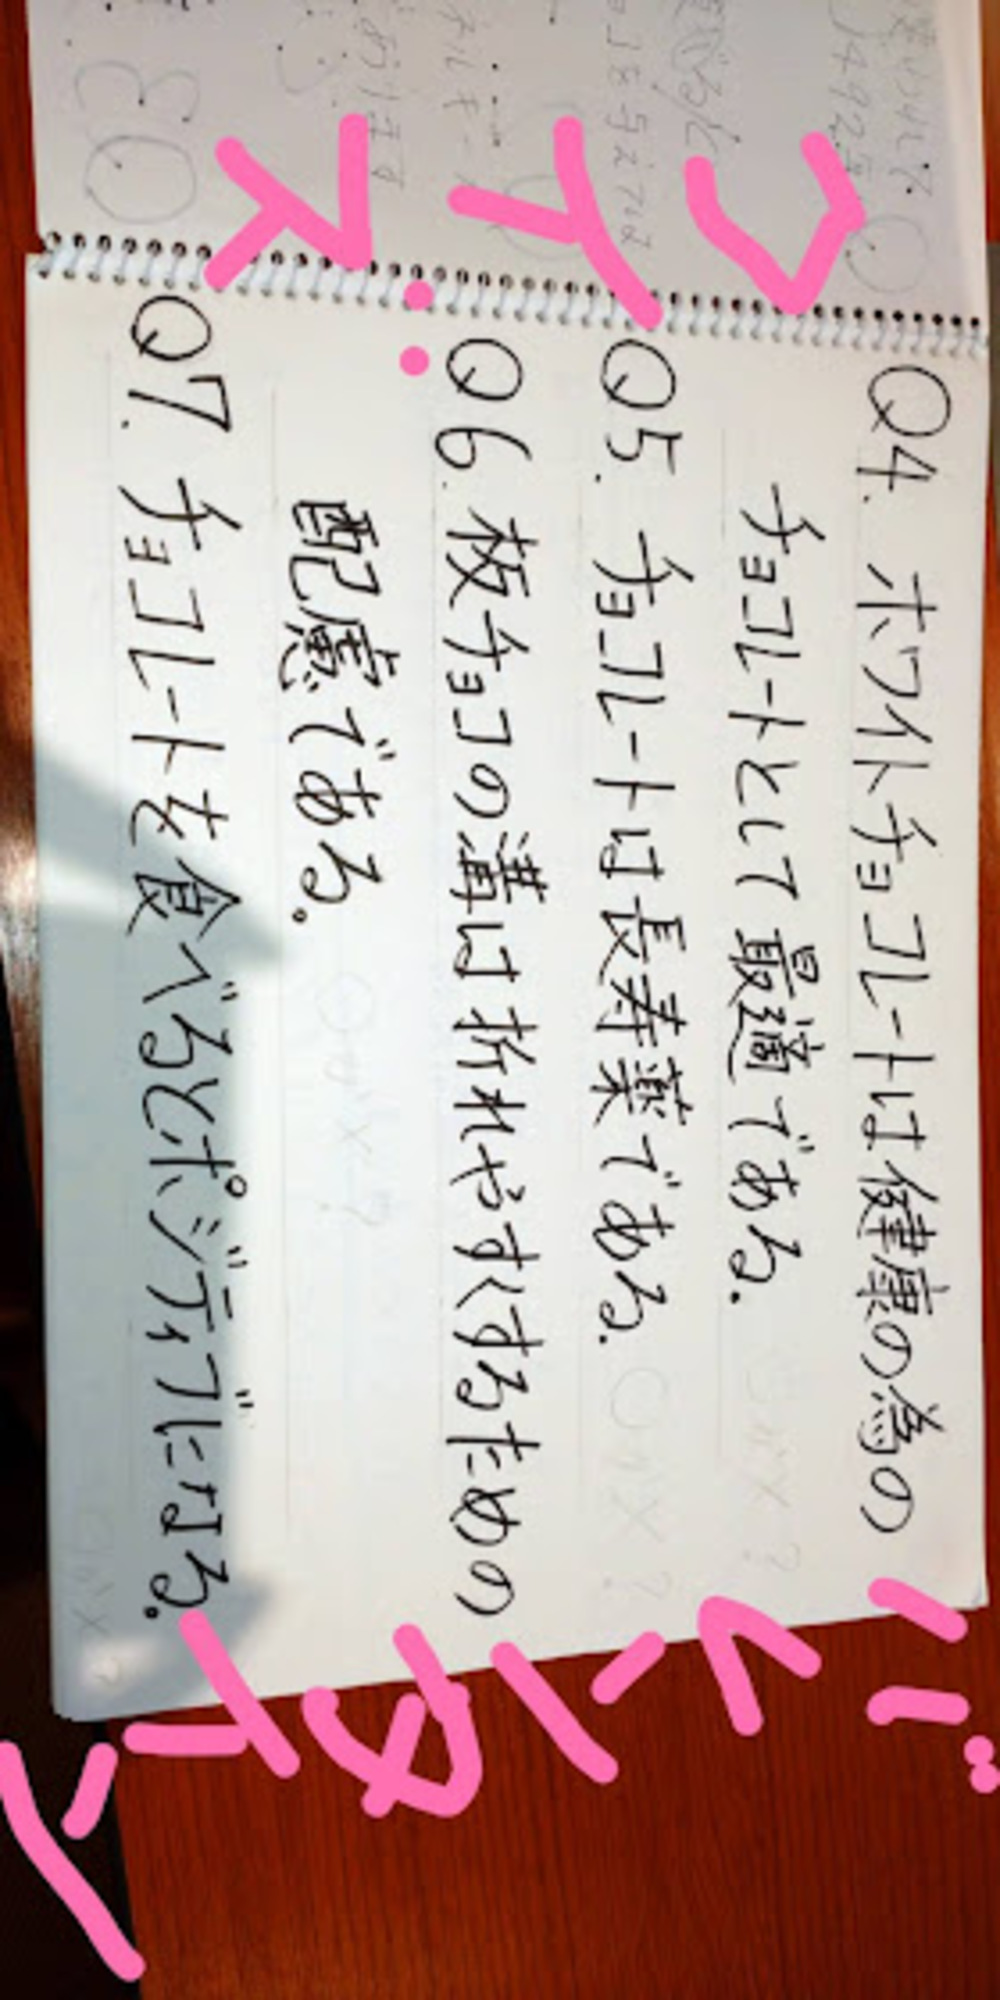 バレンタイン
クイズ
Q4. ホワイトチョコレートは健康の為の
チョコレートとして最適である.
Q5. チョコレートは長寿薬である.
Q6. 板チョコの溝は折れやすくするための
配慮である。
Q7. チョコレートを食べるとポジティブになる.